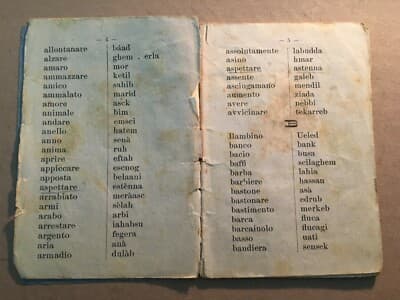 — 4 —
allontanare báad
alzare ghem . erla
amaro mor
ammazzare ketil
amico sahib
ammalato marid
amore asck
animale bim
andare emsci
anello hatem
anno senà
anima ruh
aprire eftah
applicare escnog
apposta belnani
aspettare estènna
arrabiato meràasc
armi sélah
arabo arbi
arrestare iahabsu
argento fegera
aria auà
armadio dulàb
— 5 —
assolutamente labudda
asino hmar
aspettare astenna
assente gaieb
asciugamano mendil
aumento ziada
avere nebbi
avvicinare tekarreb
B
Bambino Ueled
banco bank
bacio busa
buffi scllaghem
barba lahia
barbiere hassan
bastone asà
bastonare edrub
bastimento merkeb
barca fluca
barcainolo flucagi
basso uati
bandiera sensck